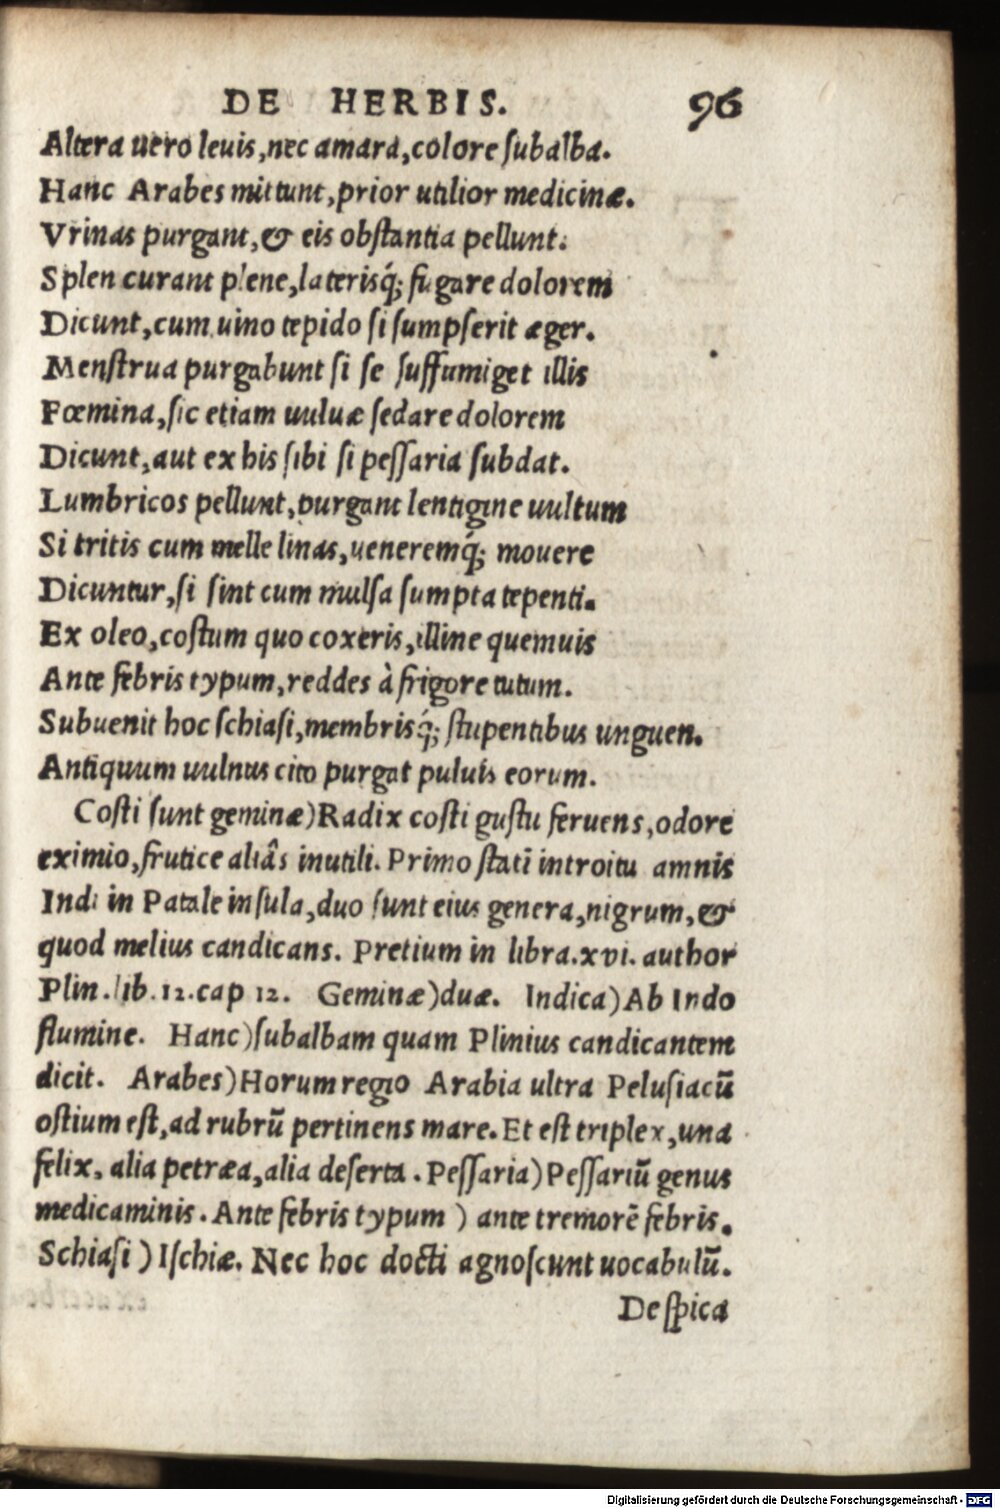 DE HERBIS. 96
Altera uero leuis, nec amara, colore ſubalba.
Hanc Arabes mittunt, prior utilior medicinæ.
Vrinas purgant, & eis obſtantia pellunt.
Splen curant plene, laterisq́; fugare dolorem
Dicunt, cum uino tepido ſi ſumpſerit æger.
Menſtrua purgabunt ſi ſe ſuffumiget illis
Fœmina, ſic etiam uuluæ ſedare dolorem
Dicunt, aut ex his ſibi ſi peſſaria ſubdat.
Lumbricos pellunt, purgant lentigine uultum
Si tritis cum melle linas, ueneremq́; mouere
Dicuntur, ſi ſint cum mulſa ſumpta tepenti.
Ex oleo, coſtum quo coxeris, illine quemuis
Ante febris typum, reddes à frigore tutum.
Subuenit hoc ſchiaſi, membrisq́; ſtupentibus unguen.
Antiquum uulnus cito purgat puluis eorum.
Coſti ſunt geminæ) Radix coſti guſtu feruens, odore
eximio, frutice aliâs inutili. Primo ſtatī introitu amnis
Indi in Patale inſula, duo ſunt eius genera, nigrum, &
quod melius candicans. Pretium in libra. xvi. author
Plin. lib. 12. cap 12. Geminæ) duæ. Indica) Ab Indo
flumine. Hanc) ſubalbam quam Plinius candicantem
dicit. Arabes) Horum regio Arabia ultra Peluſiacū
oſtium eſt, ad rubrū pertinens mare. Et eſt triplex, una
felix, alia petræa, alia deſerta. Peſſaria) Peſſariū genus
medicaminis. Ante febris typum) ante tremorē febris.
Schiaſi) Iſchiæ. Nec hoc docti agnoſcunt uocabulū.
De ſpica
Digitalisierung gefördert durch die Deutsche Forschungsgemeinschaft - DFG